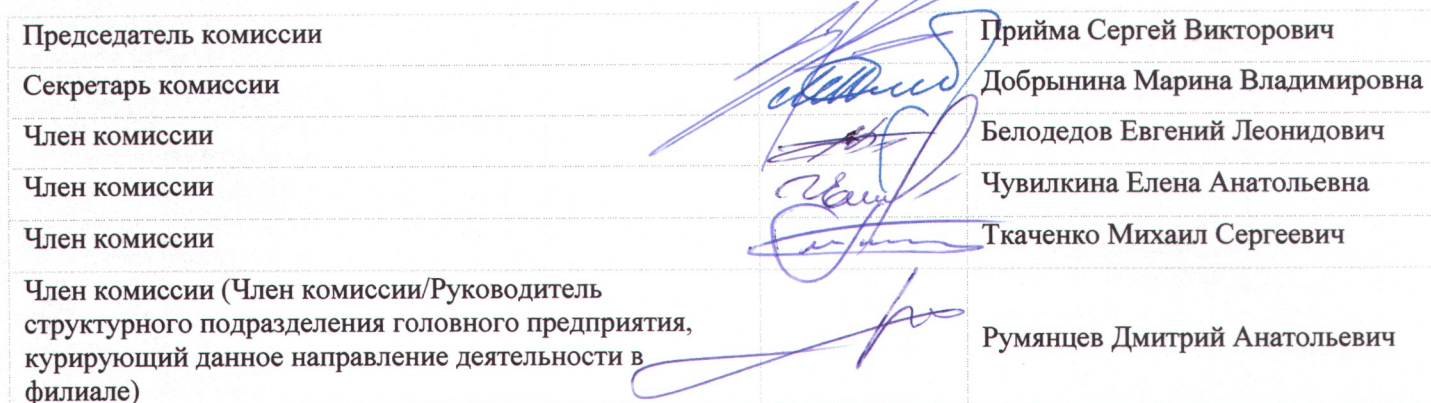 Председатель комиссии Прийма Сергей Викторович
Секретарь комиссии Добрынина Марина Владимировна
Член комиссии Белодедов Евгений Леонидович
Член комиссии Чувилкина Елена Анатольевна
Член комиссии Ткаченко Михаил Сергеевич
Член комиссии (Член комиссии/Руководитель
структурного подразделения головного предприятия,
курирующий данное направление деятельности в
филиале)
Румянцев Дмитрий Анатольевич